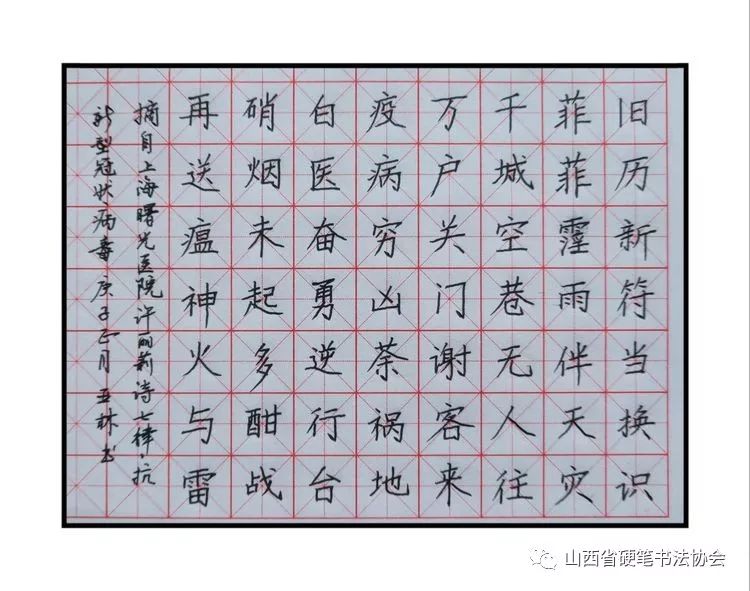 旧历新符当换识
菲菲霪雨伴天灾
千城空巷无人往
万户关门谢客来
疫病穷凶荼祸地
白医奋勇逆行台
硝烟未起多酣战
再送瘟神火与雷
摘自上海曙光医院许丽莉诗七律·抗
新型冠状病毒 庚子正月 亚林书
山西省硬笔书法协会